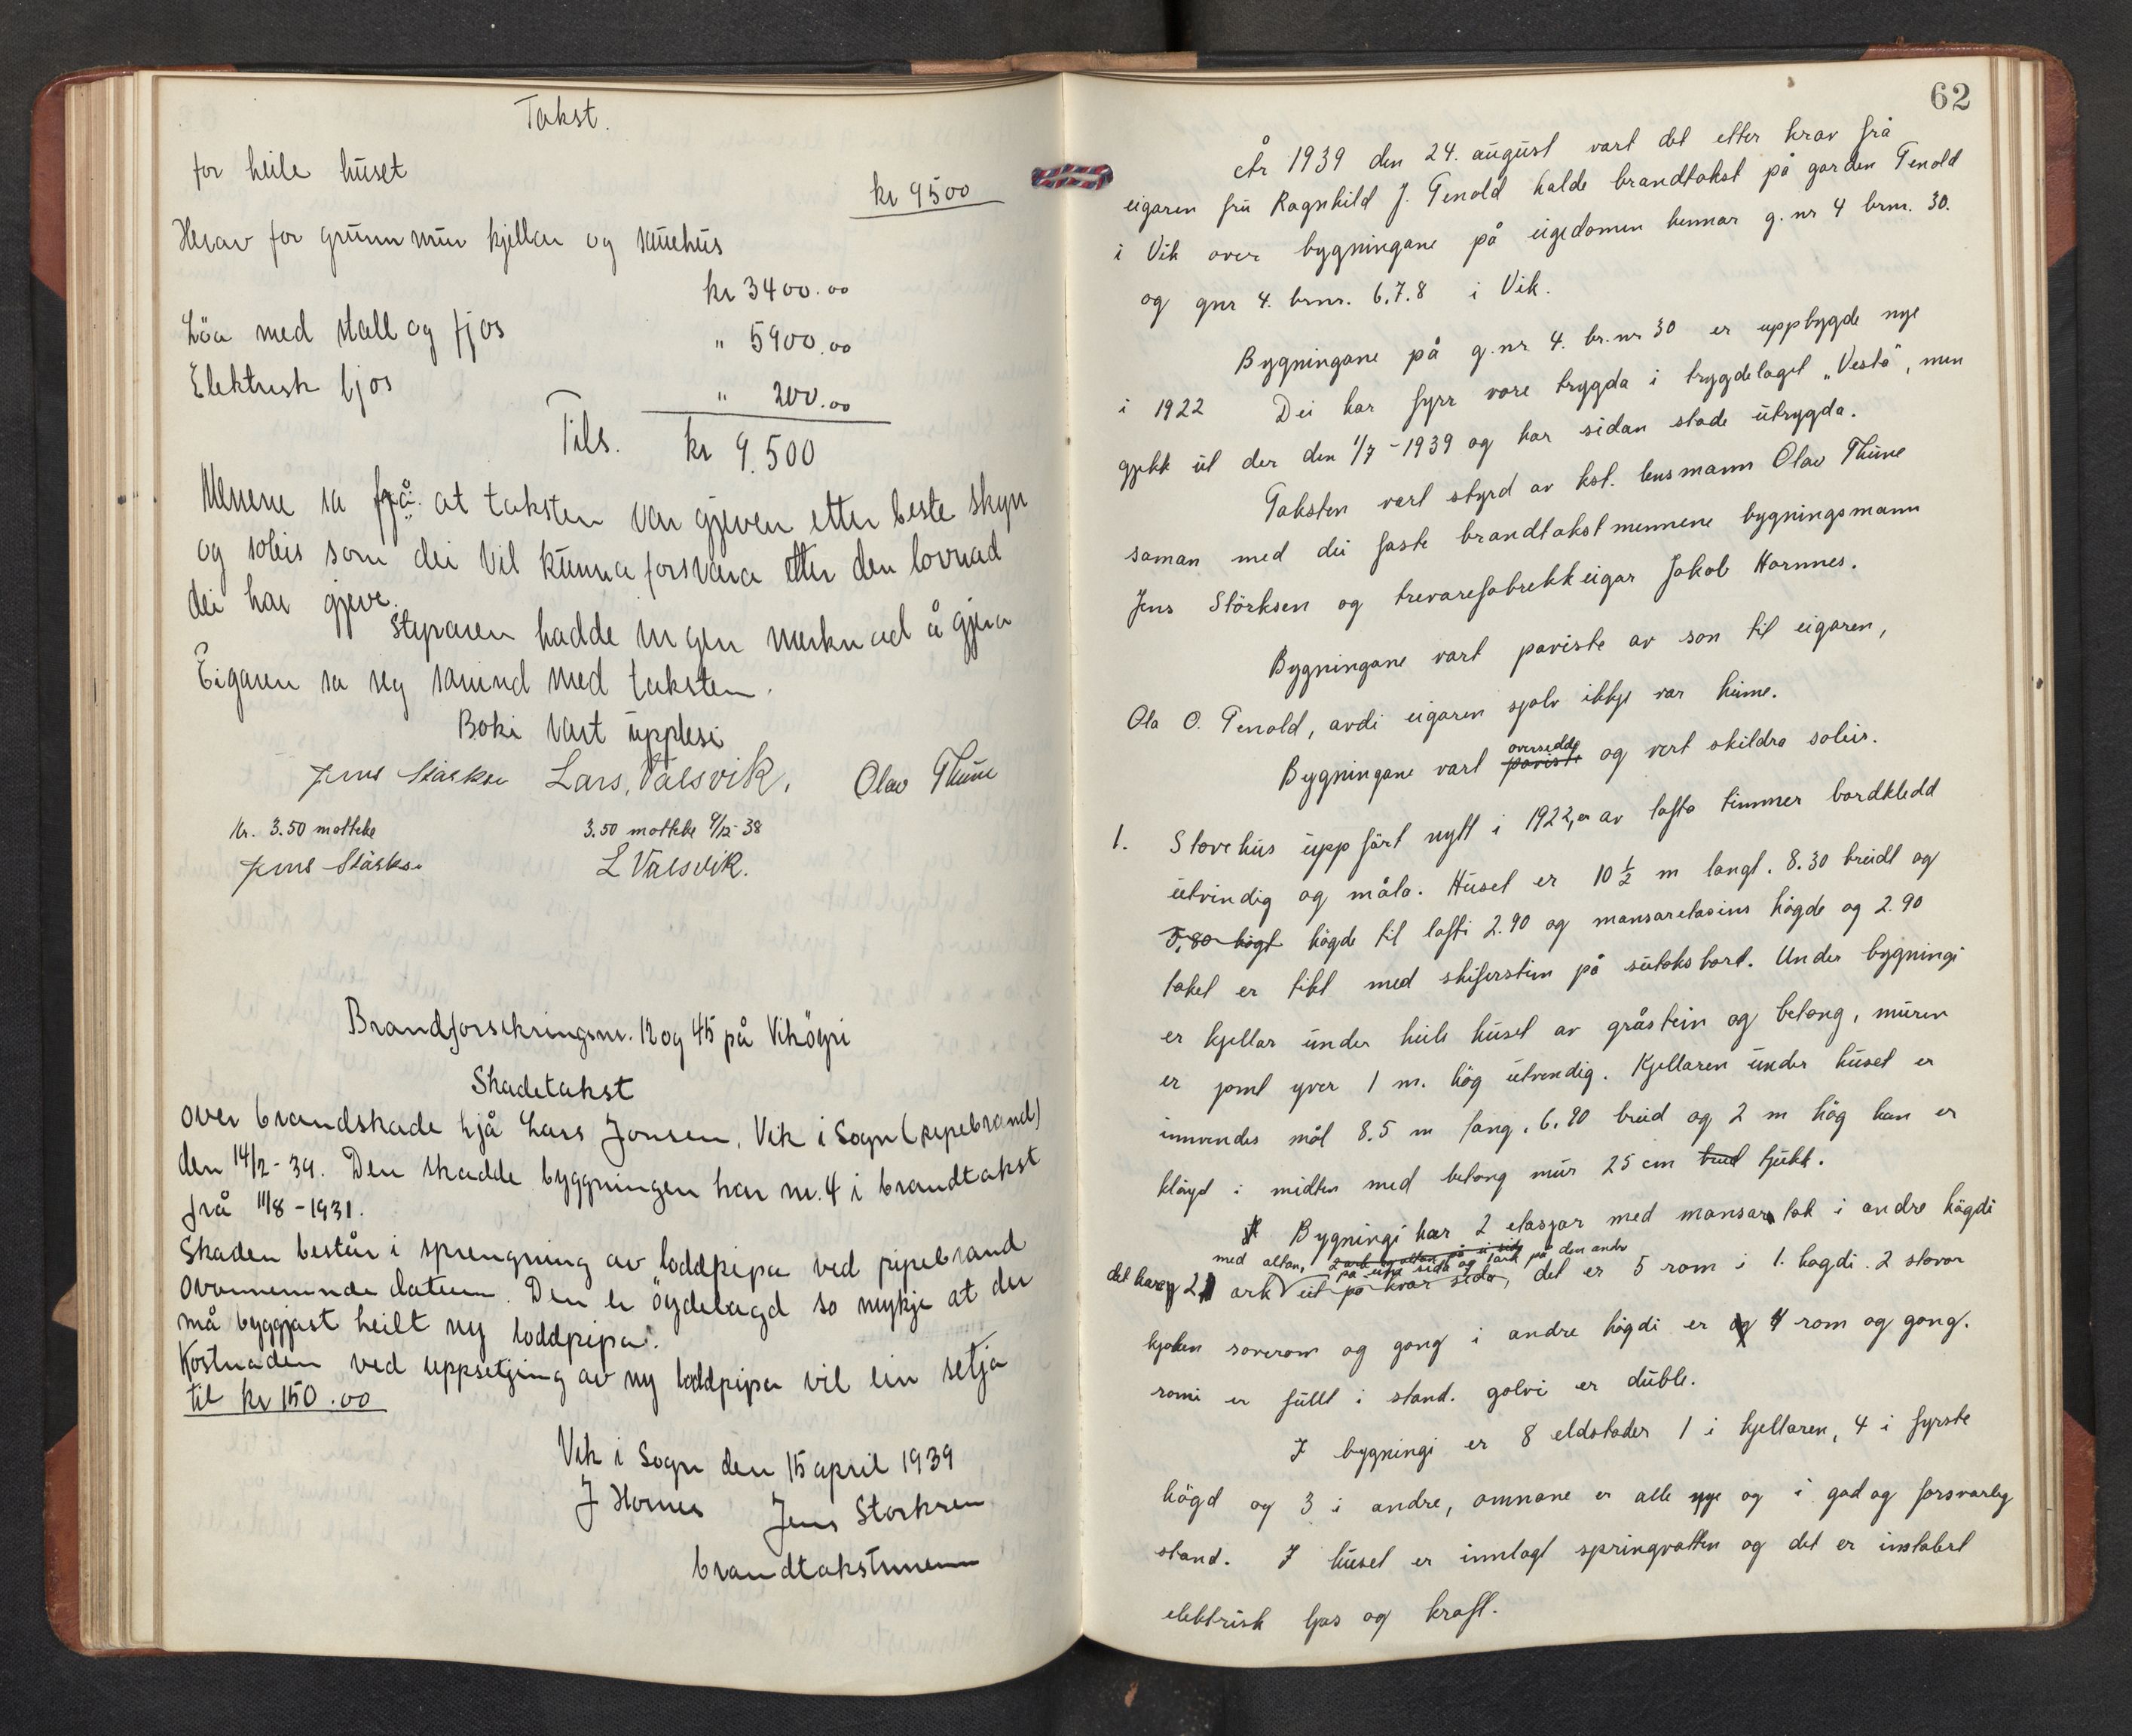 Takst.
for heile huset
kr 9500
Herav for grunnmur kjellar og sauehus
kr 3400.00
Löa med stall og fjos
" 5900.00
Elektrisk ljos
" 200.00
Tils. kr 9.500
Menene sa frå at taksten var gjeven etter beste skyn
og soleis som dei vil kunna forsvara etter den lovnad
dei har gjeve.
Styraren hadde ingen merknad å gjera
Eigaren sa seg samd med taksten.
Boki vart upplesi
Jens Störksen Lars, Valsvik. Olav Thune
Kr. 3.50 motteke 3.50 motteke 9/12-38
Jens Störksen L Valsvik.
Brandforsikringsnr. 12 og 45 på Viköyri
Skadetakst
over brandskade hjå Lars Jonsen, Vik i Sogn (pipebrand)
den 14/2-39. Den skadde byggningen har nr. 4 i brandtakst
frå 11/8-1931.
Skaden består i sprengning av loddpipa ved pipebrand
ovannemnde datum. Den er öydelagd so mykje at der
må byggjast heilt ny loddpipa.
Kostnaden ved uppsetjing av ny loddpipa vil ein setja
til kr 150.00
Vik i Sogn den 15 april 1939
J Hornes Jens Storksen
brandtakstmenn
62
År 1939 den 24. august vart det etter krav frå
eigaren fru Ragnhild J. Tenold halde brandtakst på garden Tenold
i Vik over bygningane på eigedomen hennar g.nr 4 brnr. 30.
og gnr 4. brnr. 6.7.8 i Vik.
Bygningane på g.nr. 4. br.nr 30 er uppbygde nye
i 1922 Dei har fyrr vore trygda i trygdelaget „Vesta", men
gjekk ut der den 1/7-1939 og har sidan stade utrygda.
Taksten vart styrd av kst. lensmann Olav Thune
saman med dei faste brandtakstmennene bygningsmann
Jens Störksen og trevarefabrekkeigar Jakob Hornnes.
Bygningane vart paviste av son til eigaren,
Ola O. Tenold, avdi eigaren sjølv ikkje var heime.
oversedde
Bygningane vart paviste og vert skildra soleis.
1. Stovehus uppfört nytt i 1922, er av lafta timmer bordkledd
utvindig og måla. Huset er 10 1/2 m langt. 8.30 breidt og
5,80 högt högde til lofti 2.90 og mansaretasjens högde og 2.90
taket er tekt med skiferstein på sutaksbord. Under bygningi
er kjellar under heile huset av gråstein og betong, muren
er jamt yver 1 m. hög utvendig. Kjellaren under huset er
innvendes mål 8.5 m lang, 6.90 breid og 2 m hög han er
klöyvd i midten med betong mur 25 cm breid tjukk.
Bygningi har 2 etasjar med mansartak i andre högdi
med altan, 2 ark og altan på ei side
på eine sida og 1 ark på den andre
det har og 2 ark ut på kvar sida, det er 5 rom i 1. hogdi. 2 stovor
kjøken soverom og gong i andre högdi er og 4 rom og gong.
romi er fullt i stand. golvi er duble.
I bygningi er 8 eldstader 1 i kjellaren, 4 i fyrste
högd og 3 i andre, omnane er alle nye og i god og forsvarleg
stand. I huset er innlagt springvatten og det er instalert
elektrisk ljos og kraft.